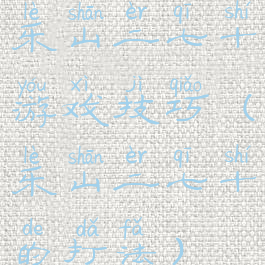 lè shān èr qī shí
乐山二七十
yóu xì jì qiǎo
游戏技巧（
lè shān èr qī shí
乐山二七十
de dǎ fǎ
的打法）